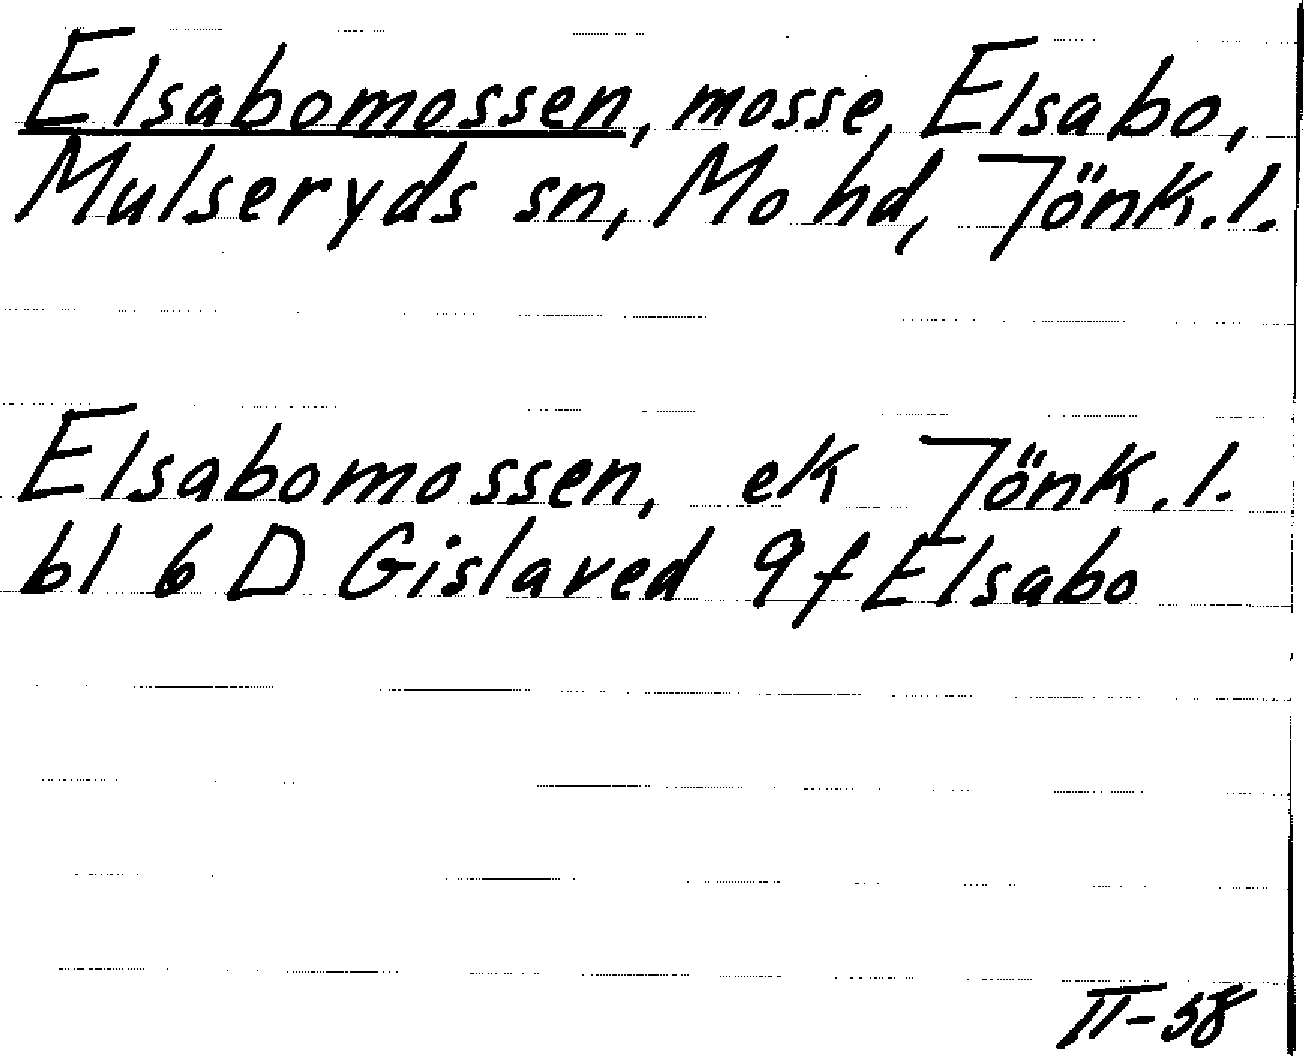 Elsabomossen, mosse, Elsabo,
Mulseryds sn, Mo hd, Jönk.l.
Elsabomossen, ek Jönk.l.
bl 6 D Gislaved 9 f Elsabo
II-58